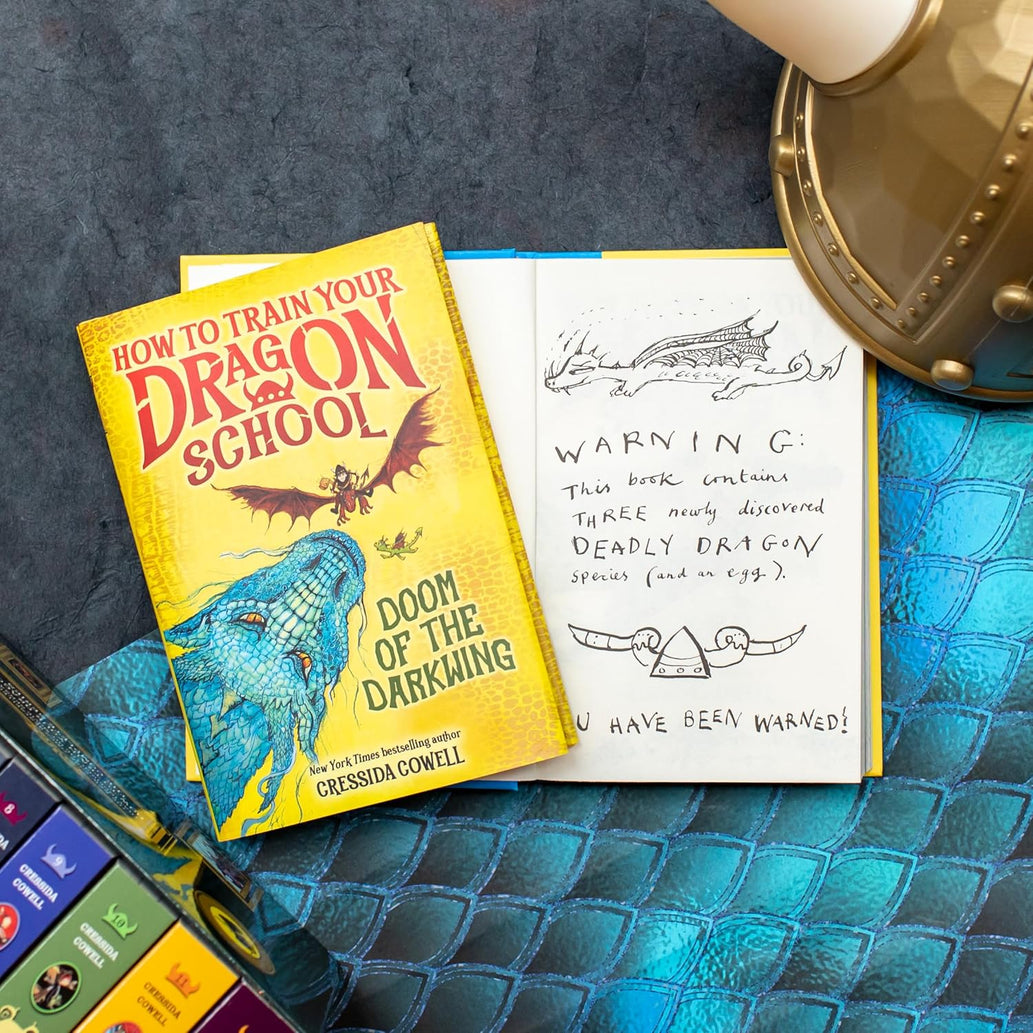 HOW TO TRAIN YOUR
DRAGON
SCHOOL
DOOM
OF THE
DARKWING
New York Times bestselling author
CRESSIDA COWELL
WARNING:
This book contains
THREE newly discovered
DEADLY DRAGON
species (and an egg).
U HAVE BEEN WARNED!
8
9
CRESSIDA
COWELL
10
CRESSIDA
COWELL
CRESSIDA
COWELL